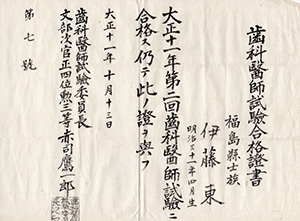 齒科醫師試驗合格證書
福島縣士族
伊藤東
明治三十一年四月生
大正十一年第二回齒科醫師試驗ニ
合格ス仍テ此ノ證ヲ與フ
大正十一年十月十三日
齒科醫師試驗委員長
文部次官正四位勲三等赤司鷹一郎
第七號